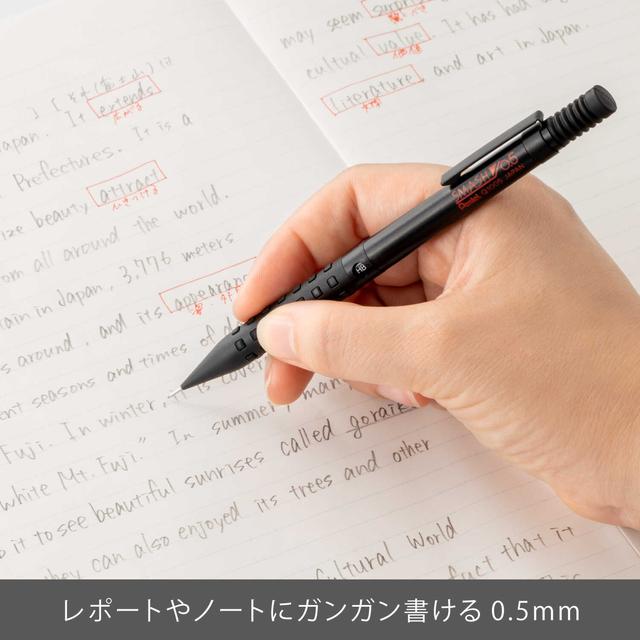 may seem surpris
cultual value. It has had a
Literature and art in Japan.
Japan. It extends
Prefectures. It is a
ize beauty attract
om all around the world.
ain in Japan, 3,776 meters
s around, and its appearanc
ent seasons and times of d
Fuji. In winter, it is cover
white Mt. Fuji." In summer, man
called goraik
o it to see beautiful sunrises
they can also enjoyed its trees and other
Cultural World
fact that it
SMASH 0.5
Pentel Q1005 JAPAN
HB
レポートやノートにガンガン書ける 0.5mm